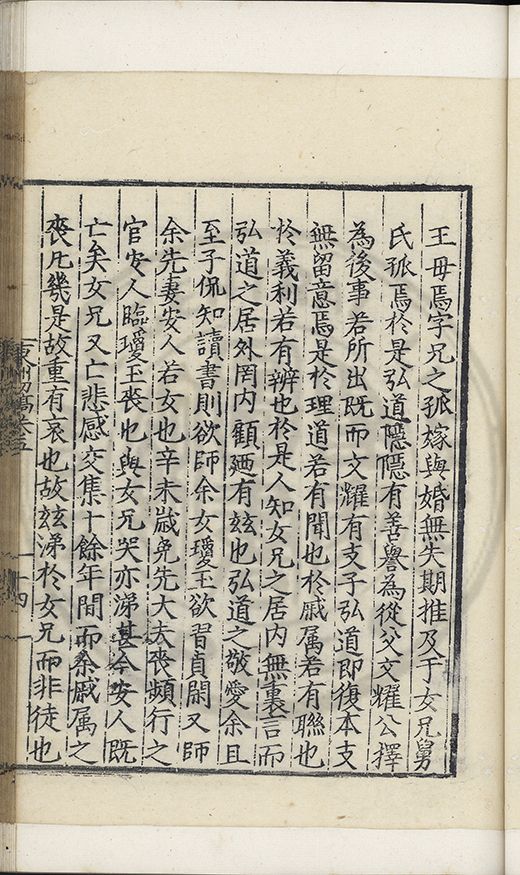 王毋焉字兄之孤嫁與婚無失期推及于女兄舅
氏孤焉於是弘道隠隠有善譽為從父文耀公擇
為後事若所出既而文耀有支子弘道即復本支
無留意焉是於理道若有聞也於戚属若有聯也
於義利若有辨也於是人知女兄之居内無裏言而
弘道之居外罔内顧廼有玆也弘道之敬愛余且
至子侃知讀書則欲師余女瓊玉欲習貞閫又師
余先妻安人若女也辛未歳免先大夫喪頻行之
官安人臨瓊玉喪也與女兄哭亦涕甚今安人既
亡矣女兄又亡悲感交集十餘年間而余戚属之
喪凡幾是故重有哀也故玆涕於女兄而非徒也
東洲初稿卷五
十四